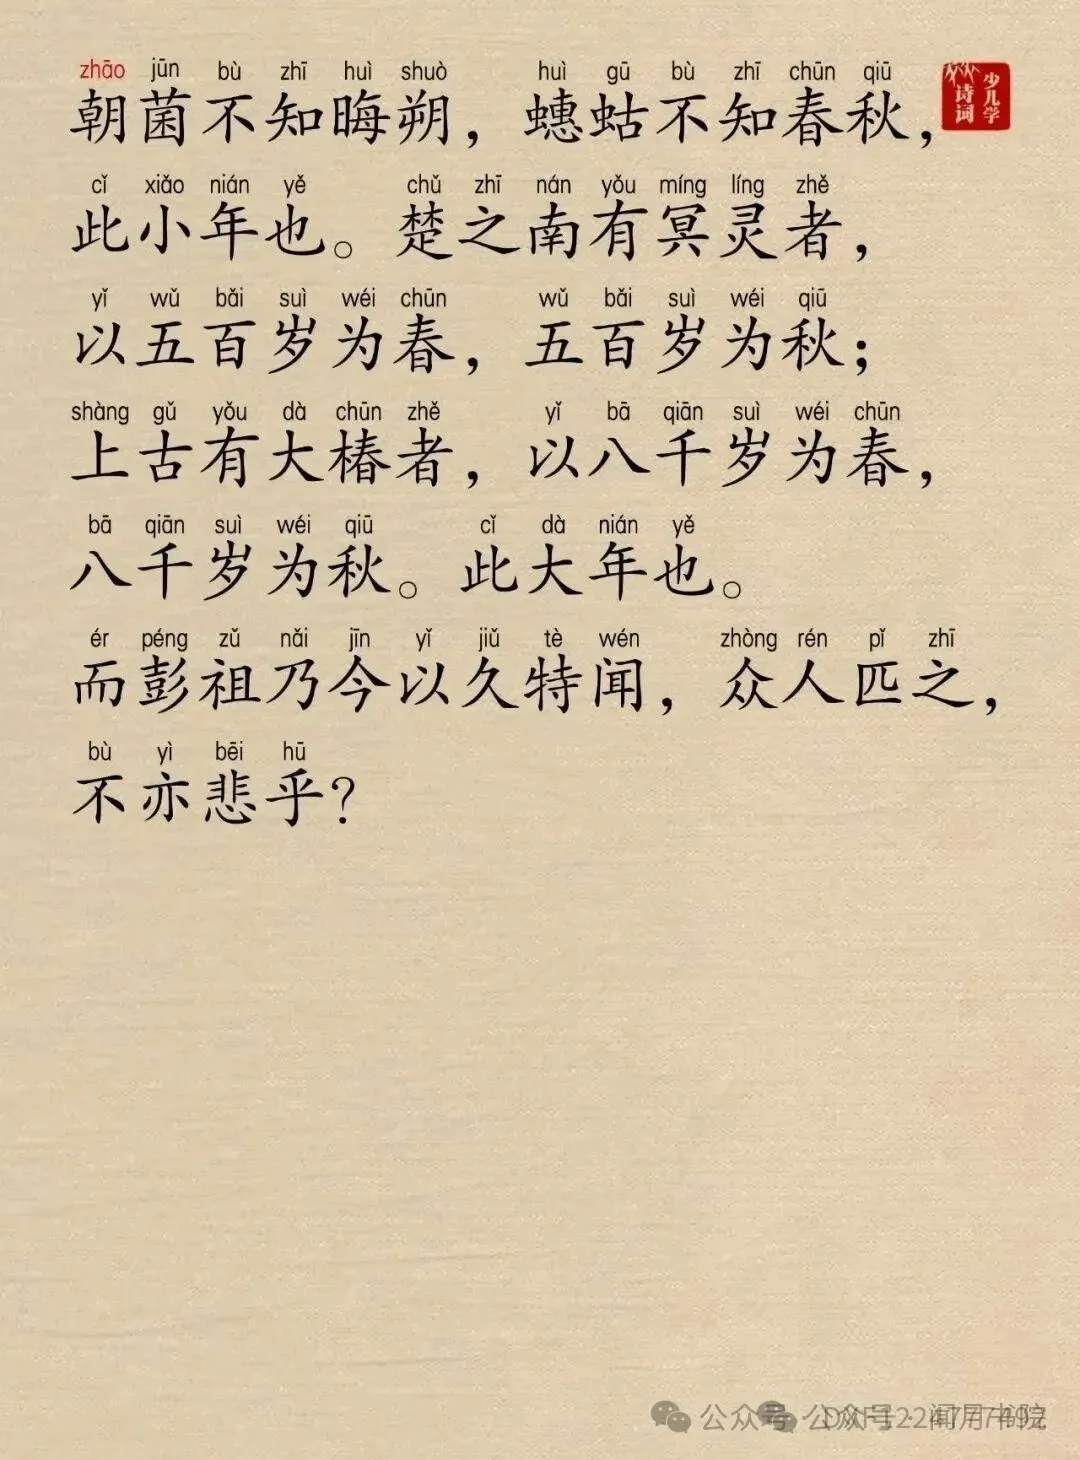 zhāo jūn bù zhī huì shuò huì gū bù zhī chūn qiū
朝菌不知晦朔，蟪蛄不知春秋，
少儿学
诗词
cǐ xiǎo nián yě chǔ zhī nán yǒu míng líng zhě
此小年也。楚之南有冥灵者，
yǐ wǔ bǎi suì wéi chūn wǔ bǎi suì wéi qiū
以五百岁为春，五百岁为秋；
shàng gǔ yǒu dà chūn zhě yǐ bā qiān suì wéi chūn
上古有大椿者，以八千岁为春，
bā qiān suì wéi qiū cǐ dà nián yě
八千岁为秋。此大年也。
ér péng zǔ nǎi jīn yǐ jiǔ tè wén zhòng rén pǐ zhī
而彭祖乃今以久特闻，众人匹之，
bù yì bēi hū
不亦悲乎？
公众号 公众号·闻月书院